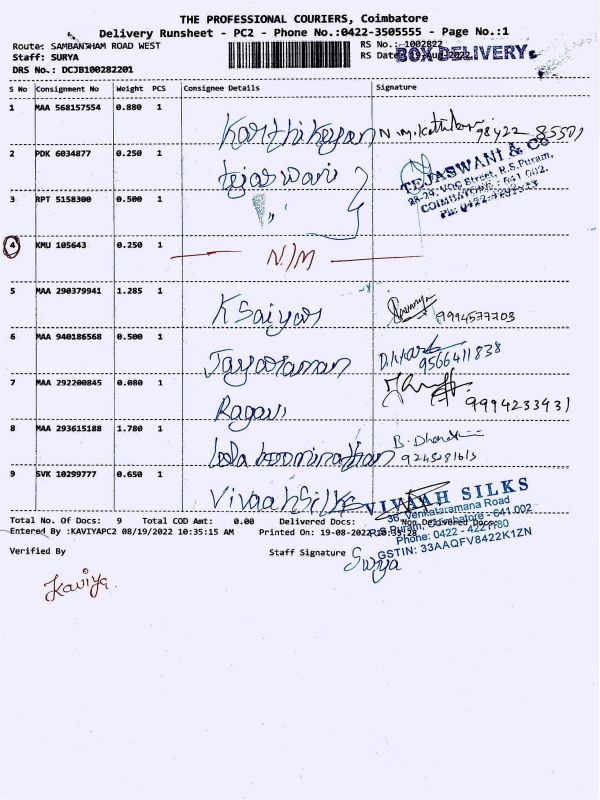 THE PROFESSIONAL COURIERS, Coimbatore
Delivery Runsheet - PC2 - Phone No.:0422-3505555 - Page No.:1
Route: SAMBANTHAM ROAD WEST RS No.: 1002822
Staff: SURYA RS Date: 19-Aug-2022
BOX DELIVERY
DRS No.: DCJB100282201
S No Consignment No Weight PCS Consignee Details Signature
1 MAA 568157554 0.880 1 Karthikeyan 98422 85501
2 PDK 6034877 0.250 1 Tejaswani
TEJASWANI & Co
28-29, VOC Street, R.S.Puram,
COIMBATORE - 641 002.
Ph: 0422-
3 RPT 5158300 0.500 1 "
4 KMU 105643 0.250 1 N/M
5 MAA 290379941 1.285 1 K Saiyas 9994577703
6 MAA 940186568 0.500 1 Jayaraman 9566411838
7 MAA 292200845 0.080 1 Ragavi 9994233931
8 MAA 293615188 1.780 1 B. Dhanal
9 SVK 10299777 0.650 1 Vivaah Silks
VIVAAH SILKS
36, Venkataramana Road
R.S.Puram, Coimbatore - 641 002
Phone: 0422 - 4221780
GSTIN: 33AAQFV8422K1ZN
Total No. Of Docs: 9 Total COD Amt: 0.00 Delivered Docs: Non Delivered Docs:
Entered By :KAVIYAPC2 08/19/2022 10:35:15 AM Printed On: 19-08-2022 10:35:28
Verified By Staff Signature Surya
Kaviya